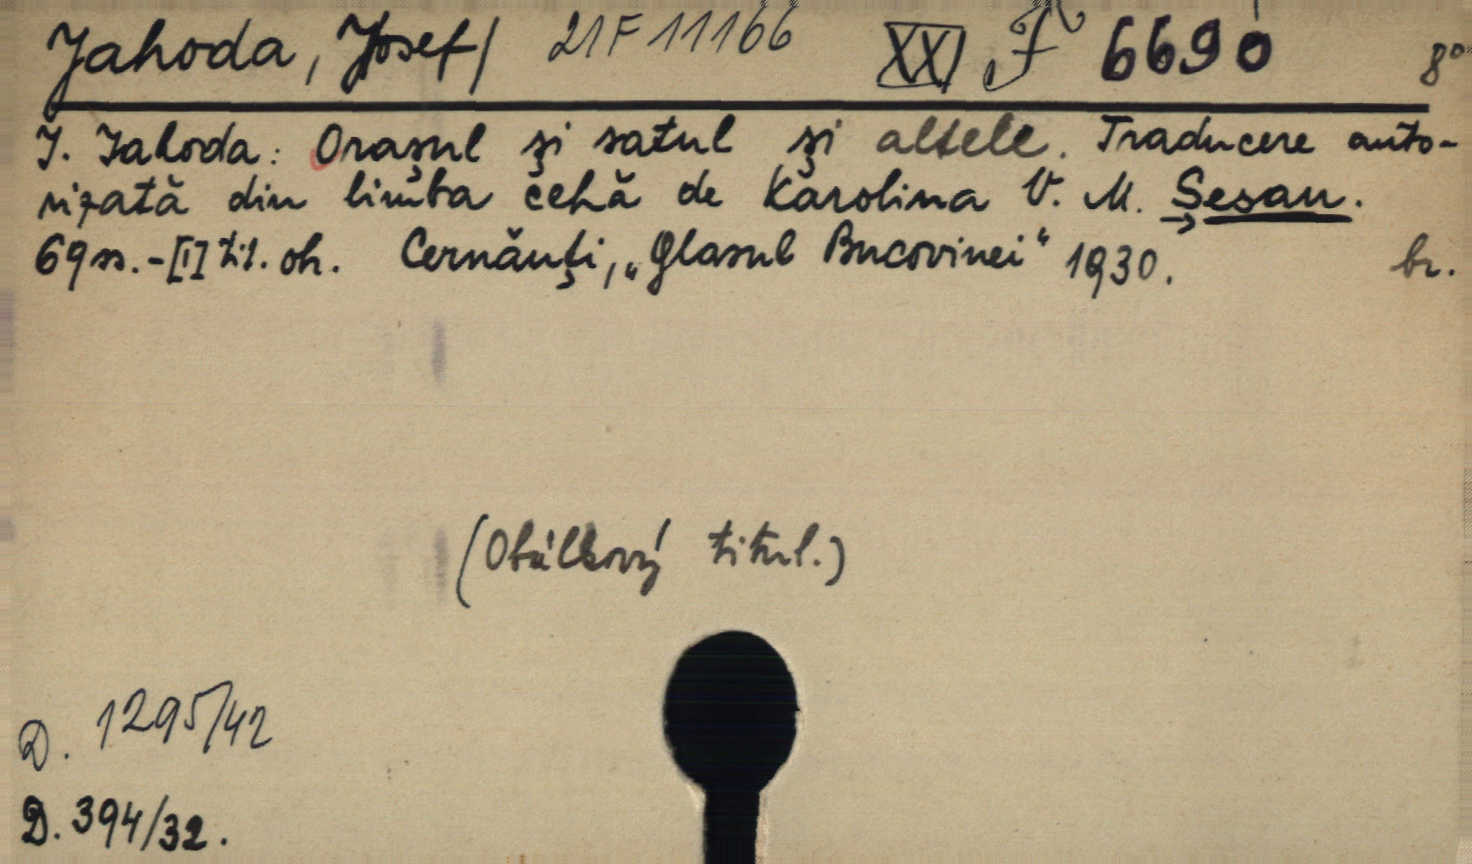 Jahoda, Josef/ 21F11166 XXI F 6690 8°
J. Jahoda: Oraşul şi satul şi altele. Traducere auto-
rizată din limba čehă de Karolina V. M. Şesan.
69 ss.-[I] tit. ob. Cernăuţi, „Glasul Bucovinei“ 1930. br.
(Obálkový titul.)
D. 1295/42
D. 394/32.